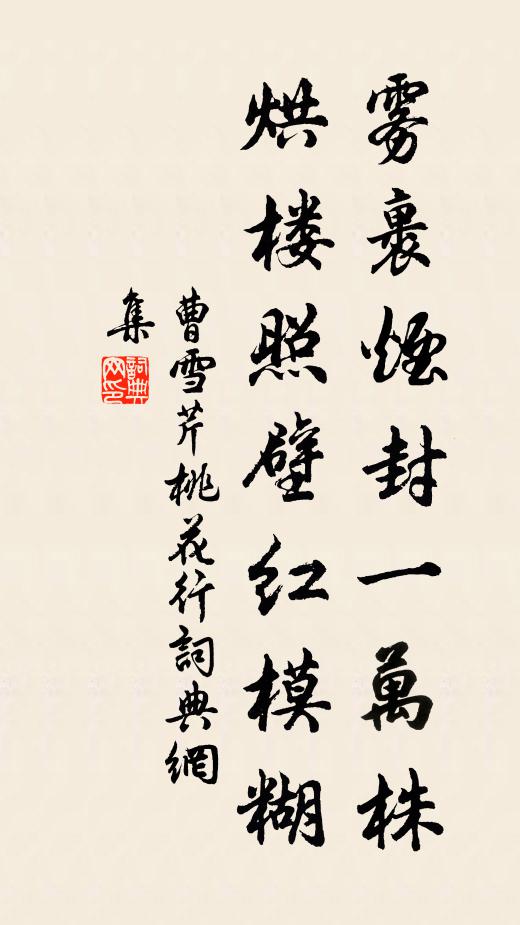 雾裹煙封一萬株
烘楼照壁红模糊
曹雪芹桃花行詞典網
集
詞典网印